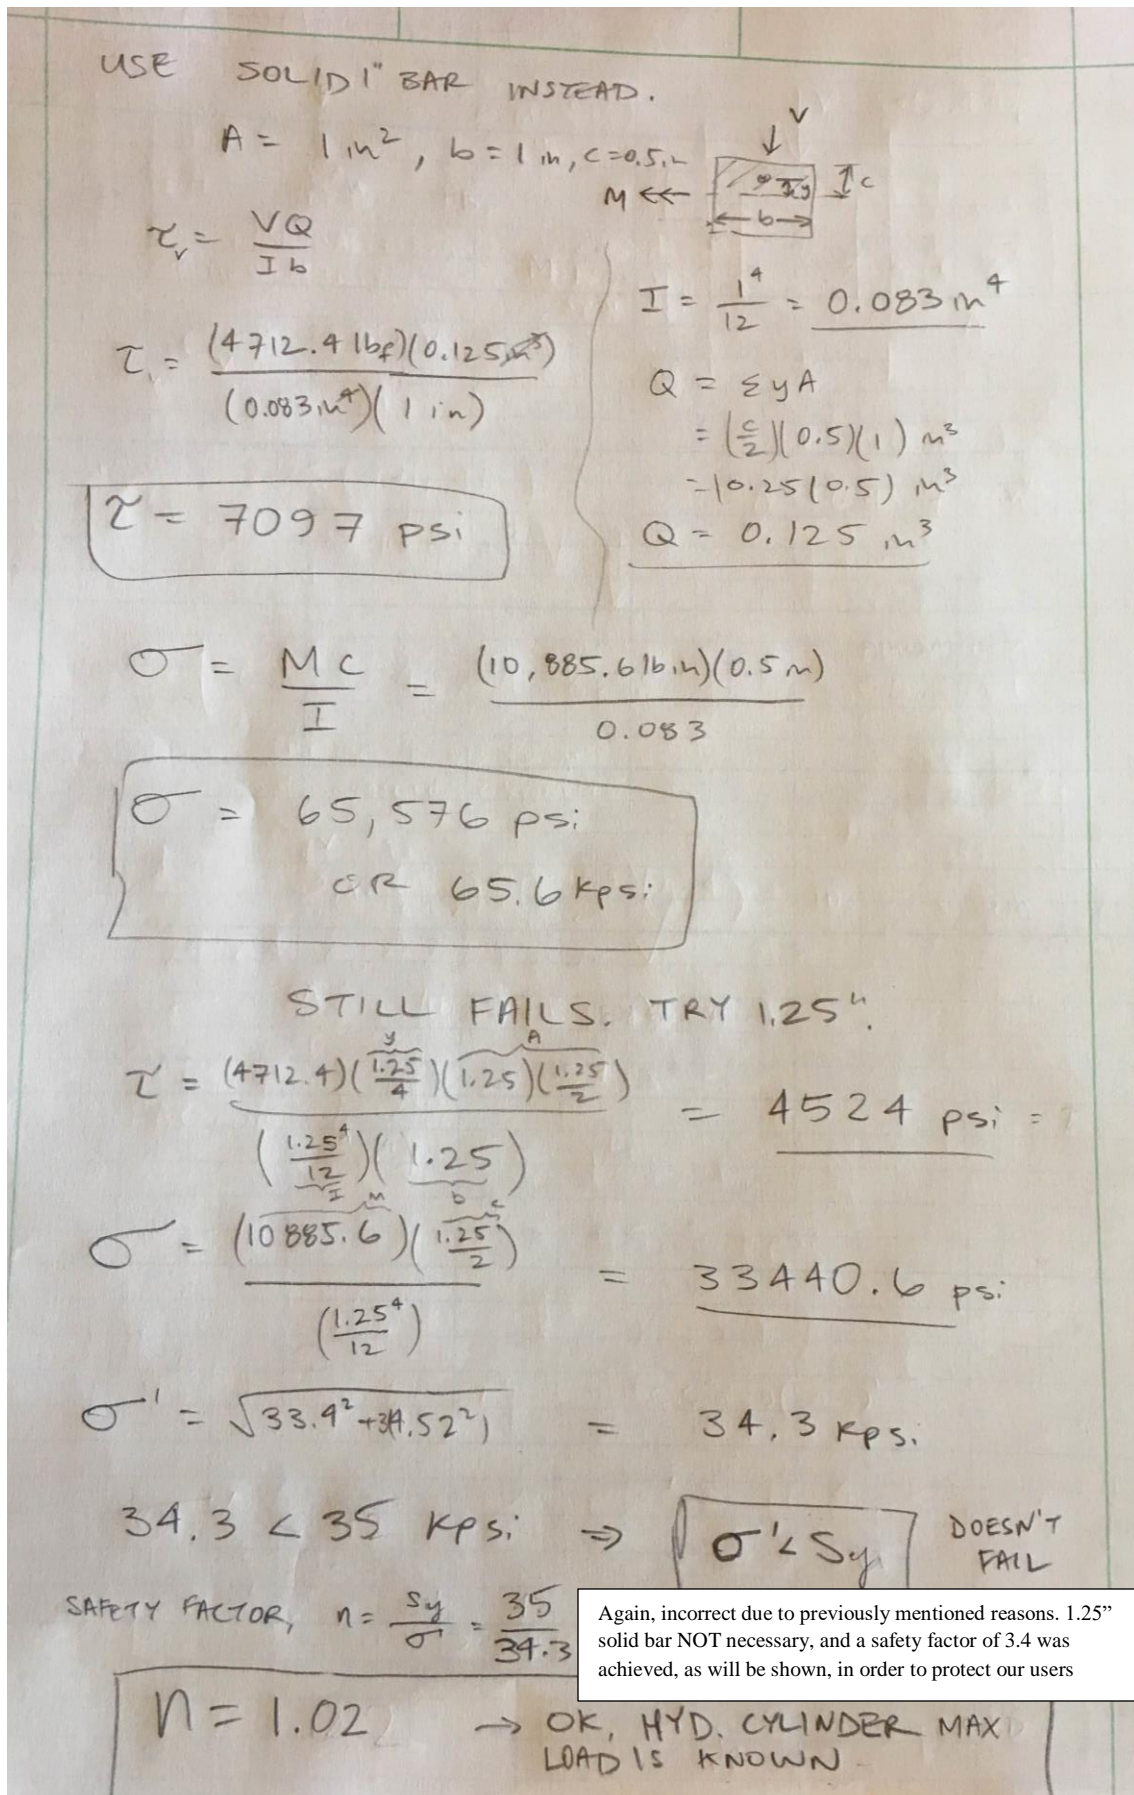 USE SOLID 1" BAR INSTEAD.
A = 1 in², b = 1 in, c = 0.5 in
V
M
y
c
b
τᵥ = VQ / Ib
I = 1⁴/12 = 0.083 in⁴
τ = (4712.4 lbf)(0.125 in³) / (0.083 in⁴)(1 in)
Q = ΣyA
= (c/2)(0.5)(1) in³
= (0.25)(0.5) in³
Q = 0.125 in³
τ = 7097 psi
σ = Mc / I = (10,885.6 lb in)(0.5 in) / 0.083
σ = 65,576 psi
OR 65.6 kpsi
STILL FAILS. TRY 1.25".
y A
τ = (4712.4)(1.25/4)(1.25)(1.25/2) / (1.25⁴/12)(1.25) = 4524 psi =
I b
M c
σ = (10885.6)(1.25/2) / (1.25⁴/12) = 33440.6 psi
σ' = √(33.4² + 3(4.52²)) = 34.3 kpsi
34.3 < 35 kpsi ⇒ σ' < Sy DOESN'T
FAIL
SAFETY FACTOR, n = Sy/σ' = 35/34.3
Again, incorrect due to previously mentioned reasons. 1.25”
solid bar NOT necessary, and a safety factor of 3.4 was
achieved, as will be shown, in order to protect our users
n = 1.02 → OK, HYD. CYLINDER MAX
LOAD IS KNOWN